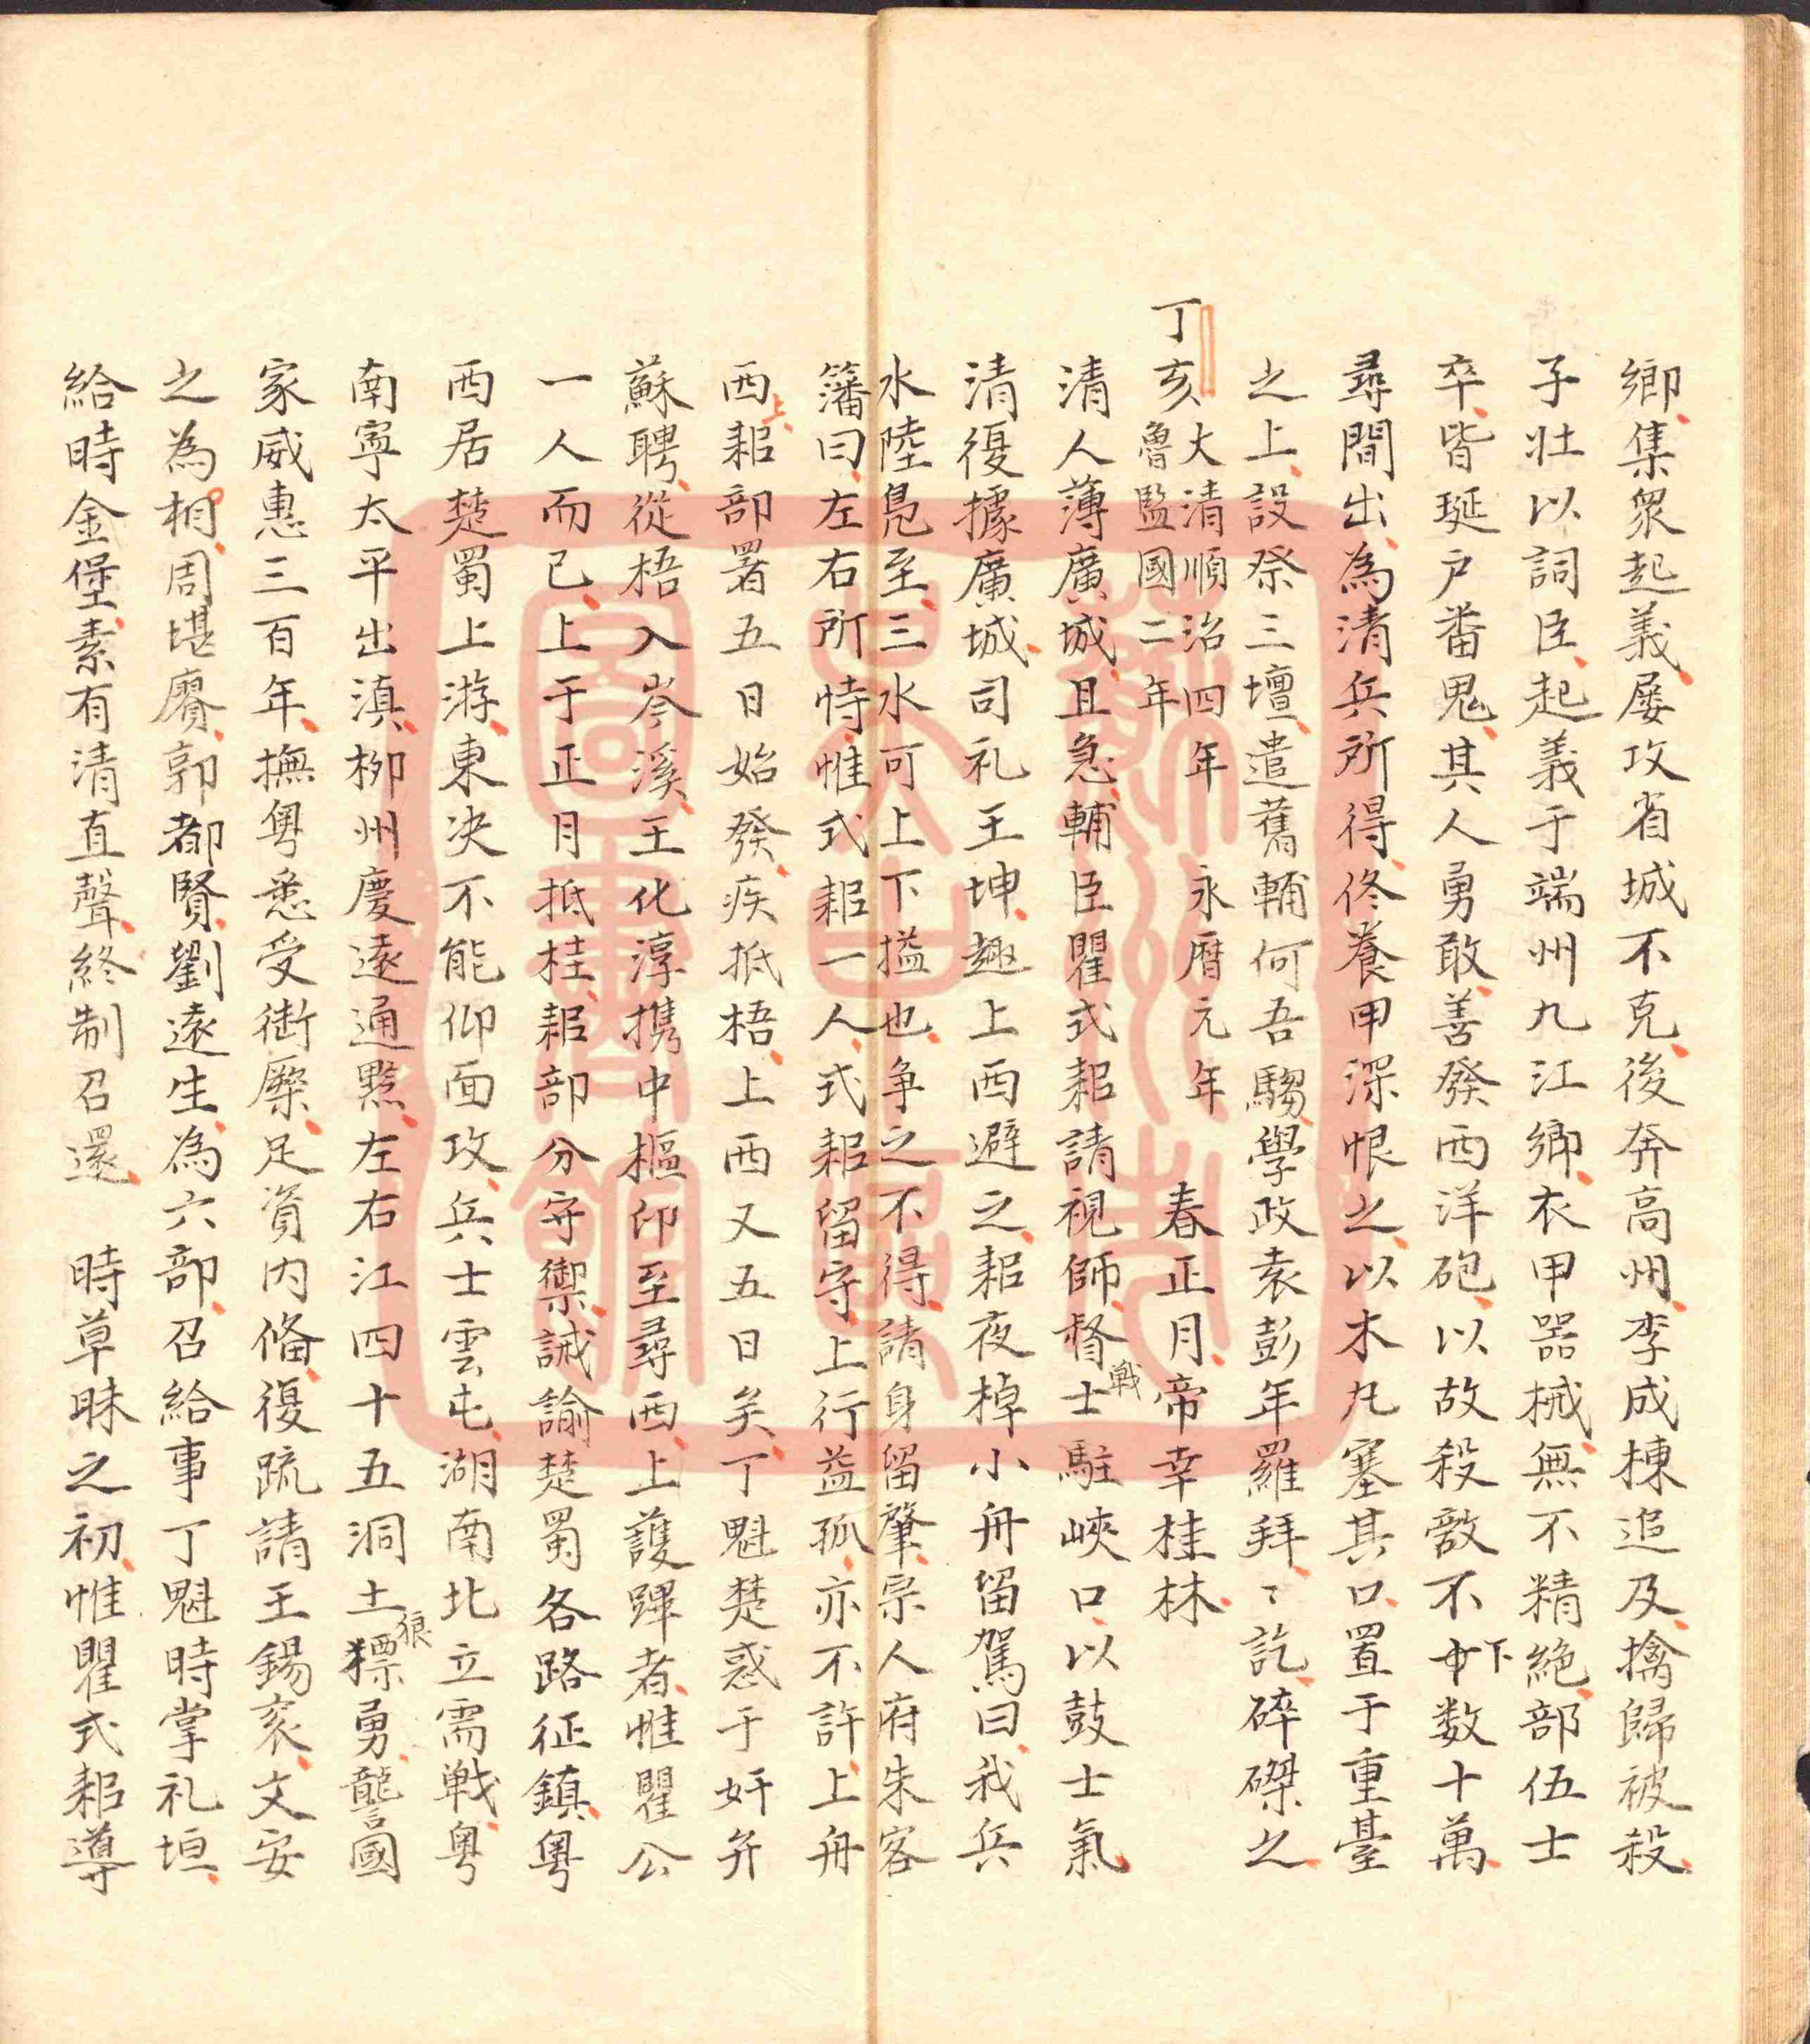 鄉集衆起義屡攻省城不克後奔高州李成棟追及擒歸被殺
子壯以詞臣起義于端州九江鄉衣甲器械無不精絶部伍士
卒皆珽户畨鬼其人勇敢善發西洋砲以故殺敵不下数十萬
尋間出為清兵所得佟養甲深恨之以木丸塞其口置于重臺
之上設祭三壇遣舊輔何吾騶學政袁彭年羅拜〻訖碎磔之
丁亥大清順治四年 永曆元年 春正月帝幸桂林
魯監國二年
清人薄廣城且急輔臣瞿式耜請視師督戰士駐峽口以鼓士氣
清復據廣城司礼王坤趣上西避之耜夜棹小舟留駕曰我兵
水陸凫至三水可上下搤也争之不得請身留肇宗人府朱容
籓曰左右所恃惟式耜一人式耜留守上行益孤亦不許上舟
西上耜部署五日始發疾抵梧上西又五日矣丁魁楚惑于奸弁
蘇聘從梧入岑溪王化淳携中樞印至尋西上護蹕者惟瞿公
一人而已上于正月抵桂耜部分守禦誡諭楚蜀各路征鎮粤
西居楚蜀上游東决不能仰面攻兵士雲屯湖南北立需戰粤
南寧太平出滇柳州慶遠通黔左右江四十五洞土狼獞勇讋國
家威惠三百年撫粤悉受銜縻足資内偹復疏請王錫衮文安
之為相周堪賡郭都賢劉遠生為六部召給事丁魁時掌礼垣
給時金堡素有清直聲終制召還 時草昧之初惟瞿式耜導